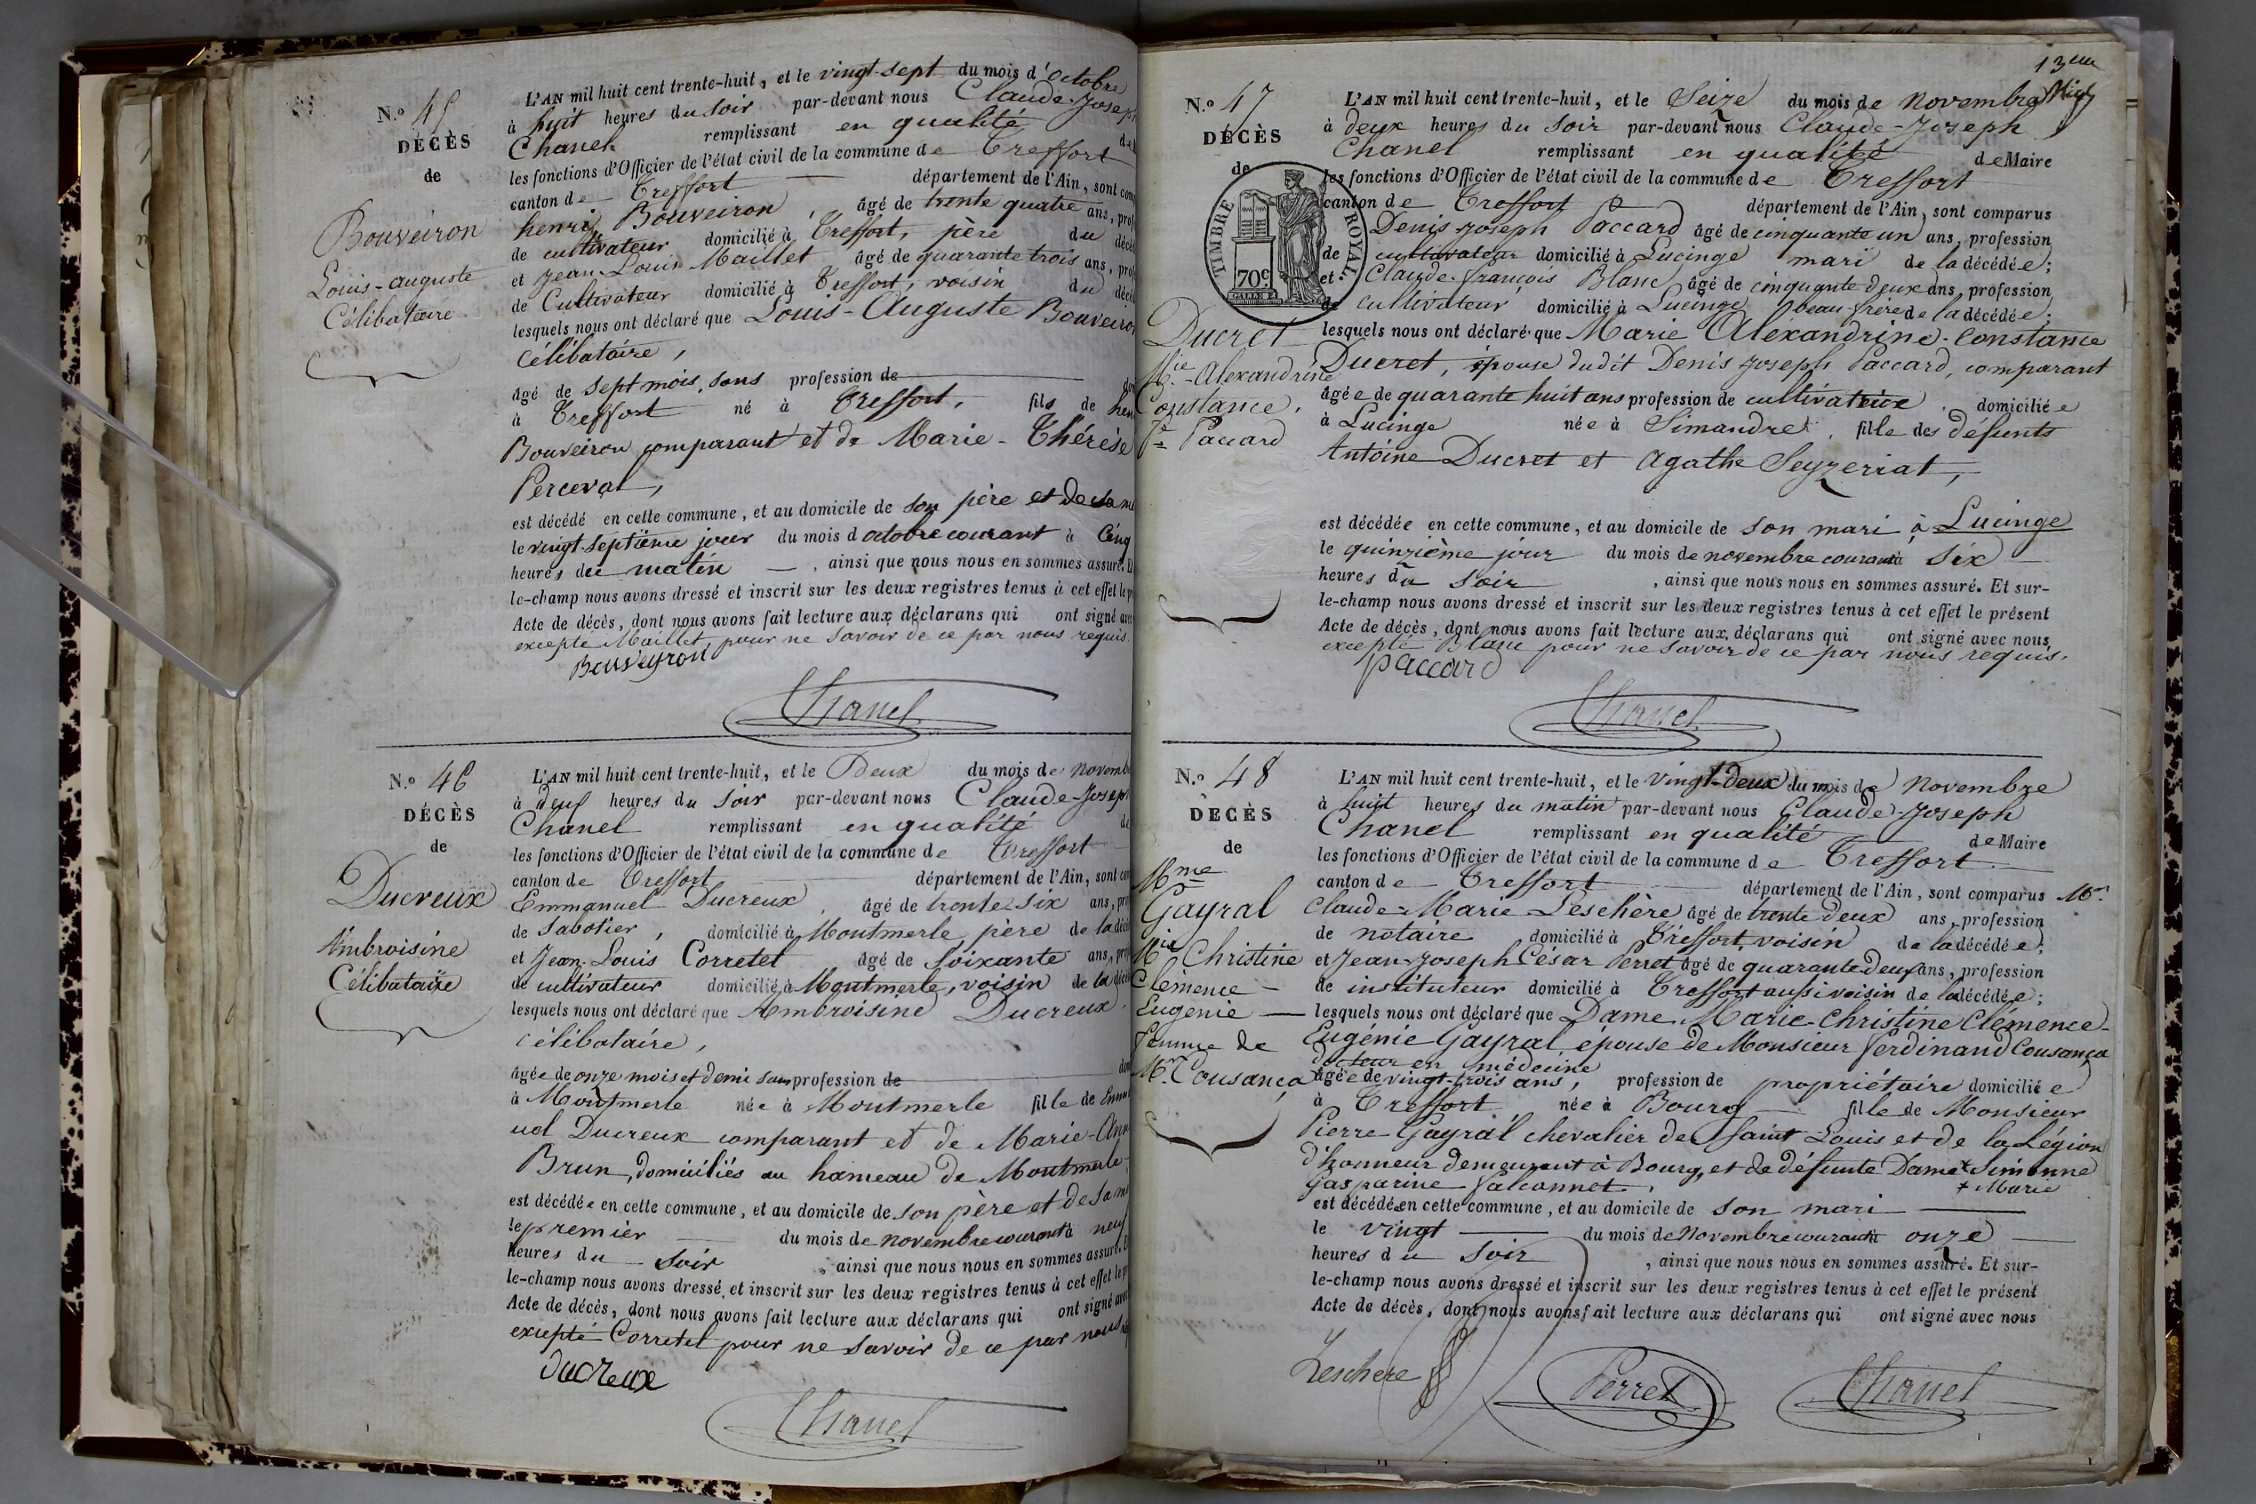 N.o 45
DÉCÈS
de
Bouveiron
Louis-auguste
Célibataire
L'AN mil huit cent trente-huit, et le vingt-sept du mois d'octobre
à huit heures du soir par-devant nous Claude-Josep
Chanel remplissant en qualité de
les fonctions d'Officier de l'état civil de la commune de Treffort
canton de Treffort département de l'Ain, sont com
henri Bouveiron âgé de trente quatre ans, prof
de cultivateur domicilié à Treffort, père du décéd
et Jean-Louis Maillet âgé de quarante trois ans, prof
de Cultivateur domicilié à Treffort, voisin du décé
lesquels nous ont déclaré que Louis-Auguste Bouveiron
célibataire,
âgé de sept mois, sans profession de
à Treffort né à Treffort, fils de hen
Bouveiron comparant et de Marie-Thérèse
Perceval,
est décédé en cette commune, et au domicile de son père et de sa m
le vingt-septième jour du mois d octobre courant à Cinq
heures du matin, ainsi que nous nous en sommes assuré. E
le-champ nous avons dressé et inscrit sur les deux registres tenus à cet effet le p
Acte de décès, dont nous avons fait lecture aux déclarans qui ont signé avec
excepté Maillet pour ne savoir de ce par nous requis.
Bouveyron
Chanel
N.o 46
DÉCÈS
de
Ducreux
Ambroisine
Célibataire
L'AN mil huit cent trente-huit, et le Deux du mois de novemb
à neuf heures du soir par-devant nous Claude-Josep
Chanel remplissant en qualité de
les fonctions d'Officier de l'état civil de la commune de Treffort
canton de Treffort département de l'Ain, sont com
Emmanuel Ducreux, âgé de trente-six ans, pro
de sabotier, domicilié à Montmerle père de la décé
et Jean-Louis Corretel âgé de soixante ans, pro
de cultivateur domicilié à Montmerle, voisin de la décé
lesquels nous ont déclaré que Ambroisine Ducreux
célibataire,
âgée de onze mois et demi sans profession de dom
à Montmerle née à Montmerle fille de Emma
uel Ducreux comparant et de Marie-Ann
Brun, domiciliés au hameau de Montmerle
est décédée en cette commune, et au domicile de son père et de sa m
le premier du mois de novembre courant à neuf
heures du soir, ainsi que nous nous en sommes assuré. E
le-champ nous avons dressé et inscrit sur les deux registres tenus à cet effet le p
Acte de décès, dont nous avons fait lecture aux déclarans qui ont signé avec
excepté Corretel pour ne savoir de ce par nous
ducreux
Chanel
13eme
N.o 47
DÉCÈS
de
TIMBRE ROYAL
70c
Ducret
Mie-Alexandrine
Constance,
Fe Paccard
L'AN mil huit cent trente-huit, et le Seize du mois de novembre
à deux heures du soir par-devant nous Claude-Joseph
Chanel remplissant en qualité de Maire
les fonctions d'Officier de l'état civil de la commune de Treffort
canton de Treffort département de l'Ain, sont comparus
Denis-Joseph Paccard âgé de cinquante un ans, profession
de cultivateur domicilié à Lucinge mari de la décédée;
et Claude-françois Blanc âgé de cinquante deux ans, profession
de cultivateur domicilié à Lucinge beau frère de la décédée;
lesquels nous ont déclaré que Marie Alexandrine-Constance
Ducret, épouse dudit Denis Joseph Paccard, comparant
âgée de quarante huit ans profession de cultivatrice, domiciliée
à Lucinge née à Simandre, fille des défunts
Antoine Ducret et Agathe Seyzeriat,
est décédée en cette commune, et au domicile de son mari à Lucinge
le quinzième jour du mois de novembre courant à six
heures du soir, ainsi que nous nous en sommes assuré. Et sur-
le-champ nous avons dressé et inscrit sur les deux registres tenus à cet effet le présent
Acte de décès, dont nous avons fait lecture aux déclarans qui ont signé avec nous,
excepté Blanc pour ne savoir de ce par nous requis.
paccard
Chanel
N.o 48
DÉCÈS
de
Mme
Gayral
Mie Christine
Clémence
Eugénie
femme de
Mr Cousança
L'AN mil huit cent trente-huit, et le vingt-deux du mois de novembre
à huit heures du matin par-devant nous Claude-Joseph
Chanel remplissant en qualité de Maire
les fonctions d'Officier de l'état civil de la commune de Treffort
canton de Treffort département de l'Ain, sont comparus Mr
Claude-Marie Leschère âgé de trente deux ans, profession
de notaire domicilié à Treffort, voisin de la décédée;
et Jean-Joseph César Perret âgé de quarante deux ans, profession
de instituteur domicilié à Treffort aussi voisin de la décédée;
lesquels nous ont déclaré que Dame Marie-Christine Clémence-
Eugénie Gayral épouse de Monsieur ferdinand Cousança
docteur en médecine
âgée de vingt-trois ans, profession de propriétaire domiciliée
à Treffort née à Bourg fille de Monsieur
Pierre Gayral chevalier de Saint Louis et de la Légion
d'honneur demeurant à Bourg, et de défunte Dame + Simonne
Gasparine falconnet, + Marie
est décédée en cette commune, et au domicile de son mari
le vingt du mois de Novembre courant à onze
heures du soir, ainsi que nous nous en sommes assuré. Et sur-
le-champ nous avons dressé et inscrit sur les deux registres tenus à cet effet le présent
Acte de décès, dont nous avons fait lecture aux déclarans qui ont signé avec nous
Leschere Perret Chanel